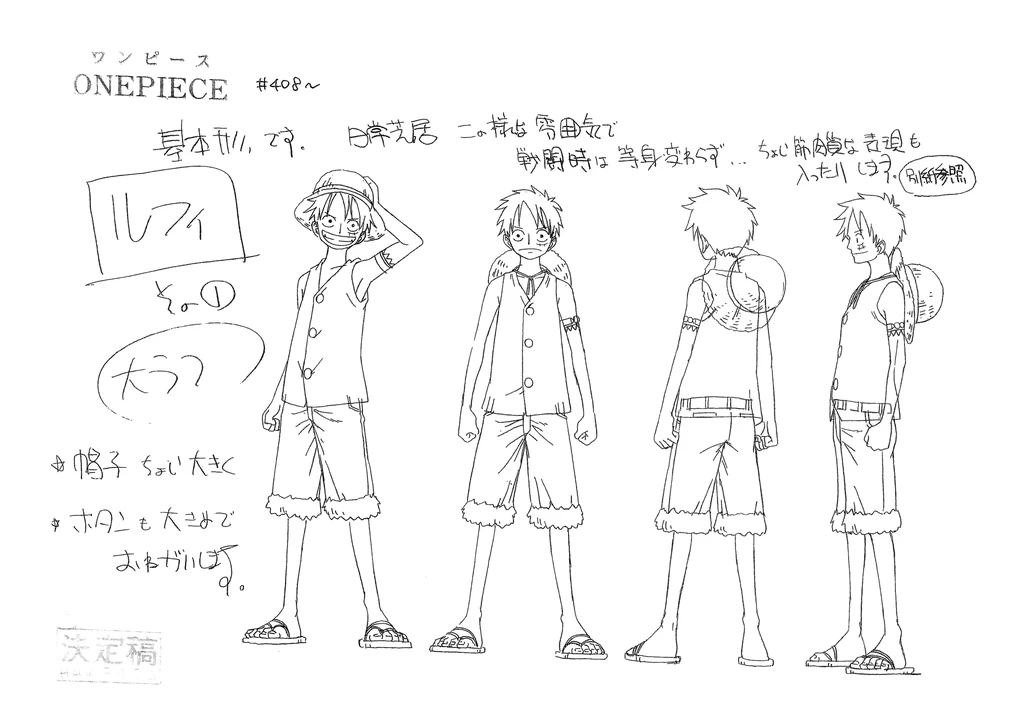 ワンピース
ONEPIECE #408～
基本形です。 日常芝居 この様な雰囲気で
戦闘時は等身変わらず… ちょい筋肉質な表現も
入ったりします。 別紙参照
ルフィ
その①
大ラフ
＊帽子 ちょい大きく
＊ボタンも大きめで
おねがいします。
決定稿